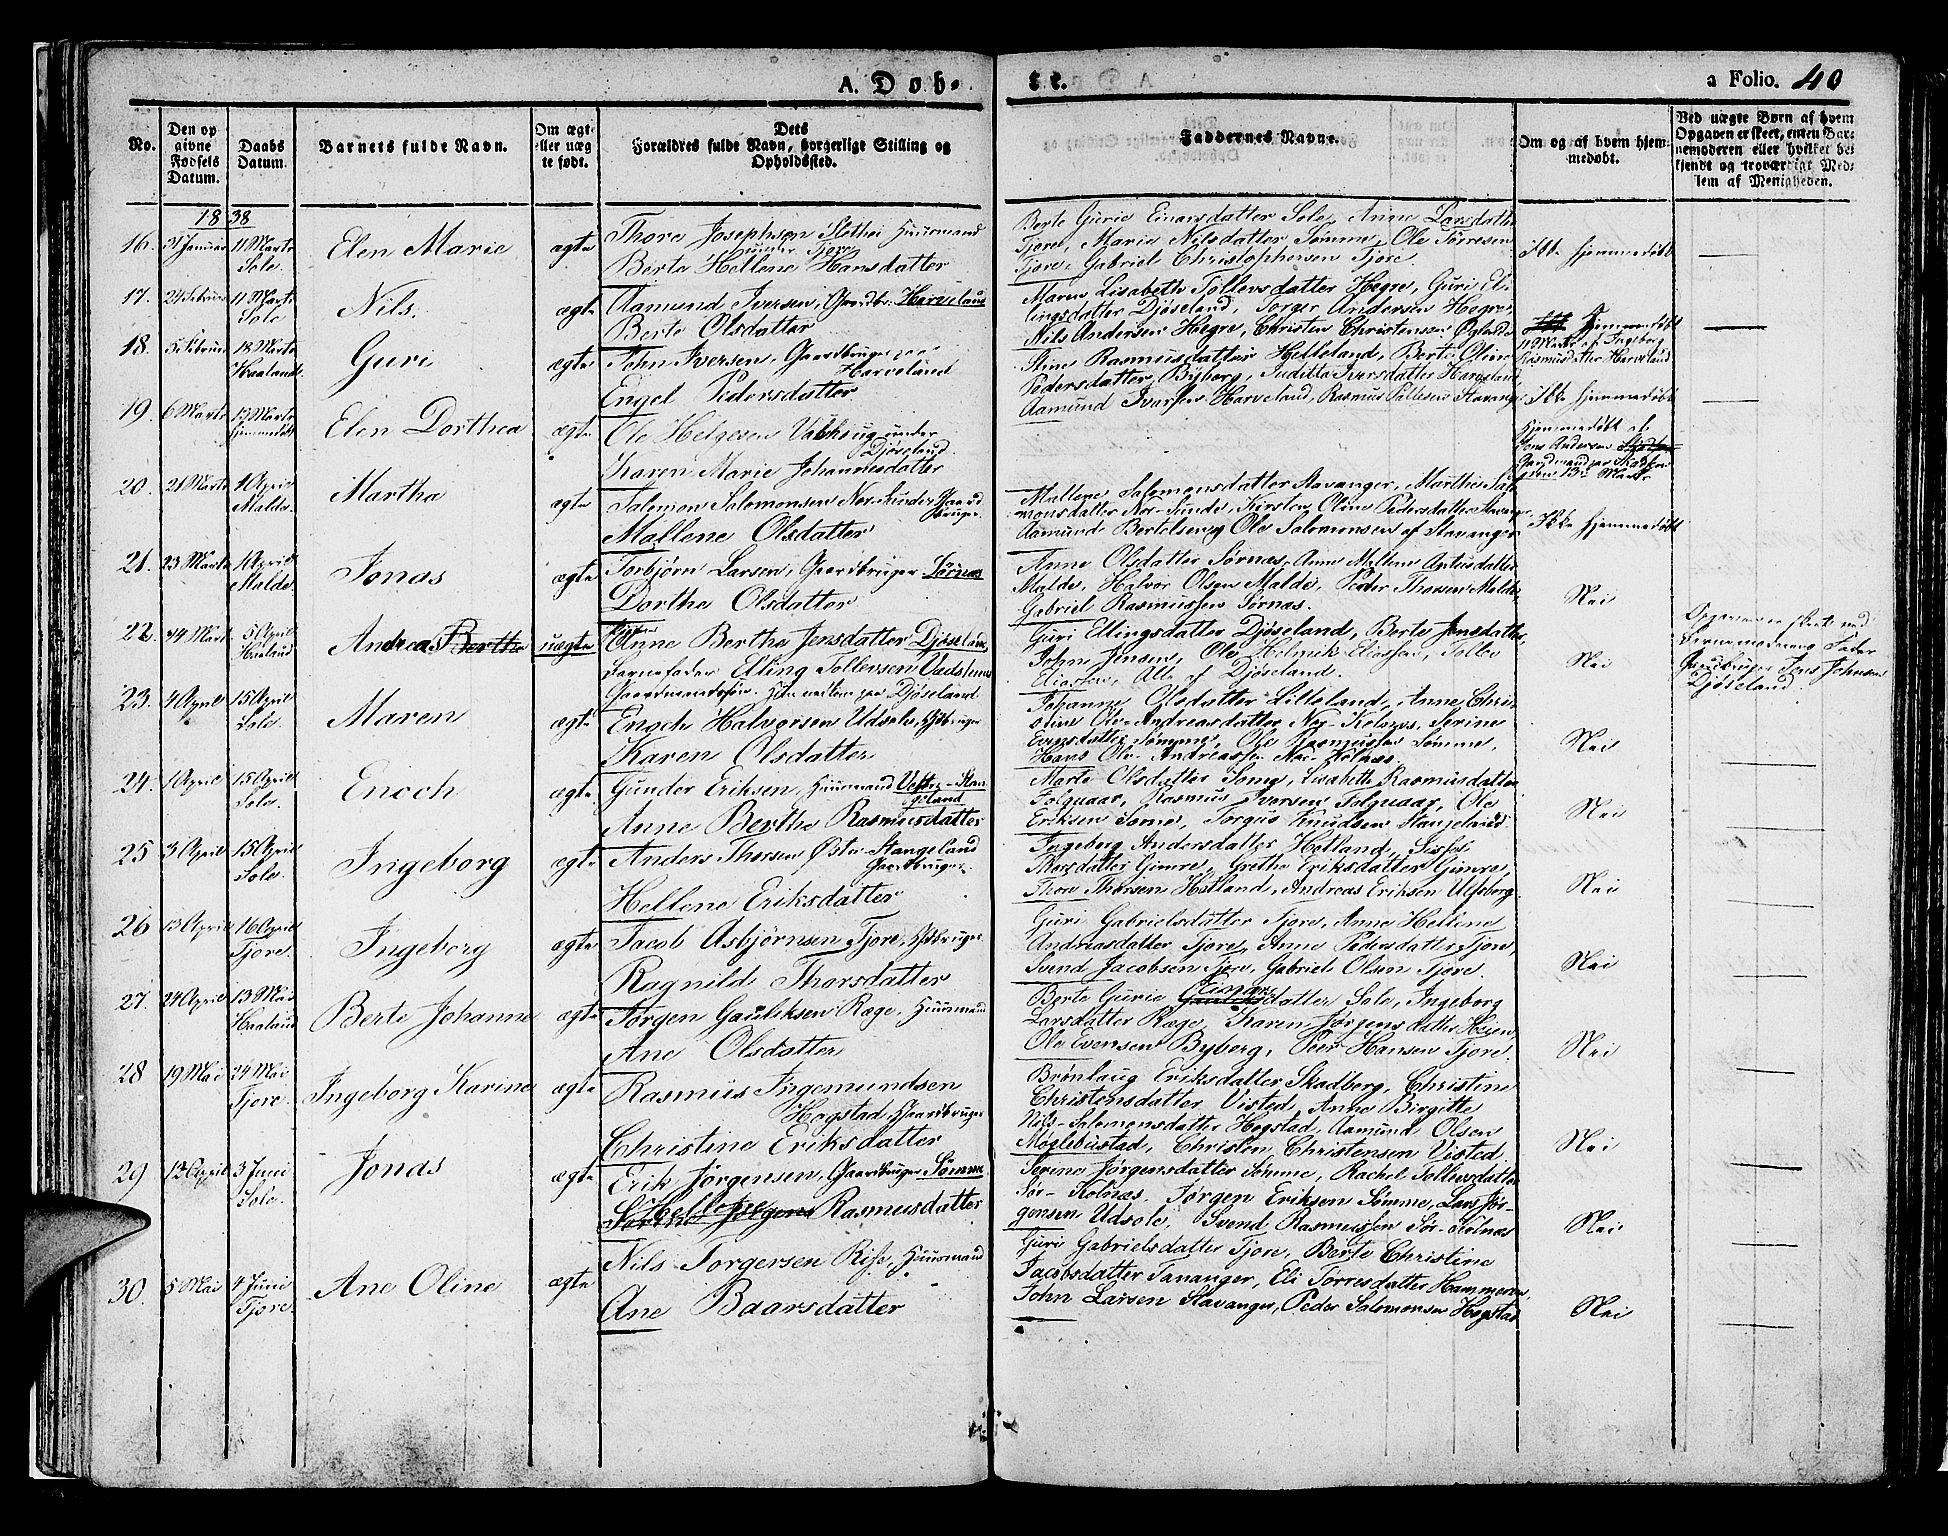 A. Døb-
te.
a Folio. 40
No.
Den op
givne
Fødsels
Datum.
Daabs
Datum.
Barnets fulde Navn.
Om ægt-
eller uæg
te født.
Dets
Forældres fulde Navn, borgerlige Stilling og
Opholdssted.
Faddernes Navne.
Om og af hvem hjem-
medøbt.
Ved uægte Børn af hvem
Opgaven er skeet, enten Bar-
nemoderen eller hvilket be-
kjendt og troværdigt Med-
lem af Menigheden.
1838
16. 31 Januar 11 Marts
Sole.
Elen Marie
ægte
Thore Josephsen Slethei Huusmand
under Tjore
Berte Hellene Hansdatter
Berte Gurie Einarsdatter Sole, Anne Larsdatter
Tjore, Marie Nilsdatter Sømme, Ole Tørresen
Tjore, Gabriel Christophersen Tjore.
Ikke hjemmedøbt
17. 24 Februar 11 Marts
Sole
Nils.
ægte
Aamund Iversen, Gaardbr. Harveland
Berte Olsdatter
Maren Lisabeth Tollevsdatter Hegre, Guri El-
lingsdatter Djøseland, Torger Andersen Hegre,
Nils Andersen Hegre, Christen Christensen
18. 5 Februar 18 Marts
Haaland.
Guri
ægte
John Iversen, Gaardbruger paa
Harveland
Engel Pedersdatter
Stine Rasmusdatter Helleland, Berte Oline
Pedersdatter, Byberg, Juditte Iversdatter Harveland,
Aamund Iversen Harveland, Rasmus Pallesen Stavanger
Hjemmedøbt
11 Marts af Ingeborg
Rasmusdatter Harveland
Ikke hjemmedøbt
19. 6 Marts 13 Marts
hjemmedøbt
Elen Dorthea
ægte
Ole Helgesen under
Djøseland.
Karen Marie Johannesdatter
Hjemmedøbt af
Jens Andersen
Gaardmand paa
den 13de Marts
20. 21 Marts 1 April
Malde.
Martha
ægte
Salomon Salomonsen Nor-Sunde, Gaard
bruger.
Mallene Olsdatter
Mallene Salomonsdatter Stavanger, Marthe Salo-
monsdatter Nor-Sunde, Kirsten Oline Pedersdatter Stavanger
Aamund Bertelsen og Ole Salomonsen af Stavanger
Ikke hjemmedøbt
21. 23 Marts 1 April
Malde.
Jonas
ægte
Torbjørn Larsen, Gaardbruger Sørnæs
Dorthe Olsdatter
Anne Olsdatter Sørnæs, Anne Mallene
Malde, Halvor Olsen Malde, Peder Thorsen Malde,
Gabriel Rasmussen Sørnæs.
Nei
22. 14 Marts 5 April
Haaland
Andreas Berthe
uægte
Anne Berthe Jensdatter Djøseland,
Barnefader Elling Tollevsen
Gaardmandssøn. Djøseland
Guri Ellingsdatter Djøseland, Berte Jensdatter,
John Jensen, Ole Helmik Eliassen, Tollev
Eliassen, Alle af Djøseland.
Nei
Opgaven er skeet ved
Barnemoderens Fader
Gaardbruger Jens Johnsen
Djøseland.
23. 4 April 15 April
Sole.
Maren
ægte
Enoch Halvorsen Udsole, Gdbruger
Karen Olsdatter
Johanne Olsdatter Lilleland, Anne Chris-
tine Ole-Andreasdatter Nor-Kolnæs, Serine
Evensdatter Sømme, Ole Rasmussen Sømme,
Hans Ole-Andreassen Nor-Kolnæs.
Nei
24. 1 April 15 April
Sole.
Enoch
ægte
Gunder Eriksen, Huusmand Vestre-Stan
geland
Anne Berthe Rasmusdatter
Marte Olsdatter Lisabeth Rasmusdatter
Folquaar, Rasmus Iversen Folquaar, Ole
Eriksen Torgius Knudsen Stangeland.
Nei
25 3 April 15 April
Sole.
Ingeborg
ægte
Anders Thorsen Østre-Stangeland
Gaardbruger.
Hellene Eriksdatter
Ingeborg Andersdatter Hetland, Sissel
datter Gimre, Grethe Eriksdatter Gimre,
Thore Thorsen Hetland, Andreas Eriksen
Nei
26 13 April 16 April
Tjore.
Ingeborg
ægte
Jacob Asbjørnsen Tjore, Gdbruger.
Ragnild Thorsdatter
Guri Gabrielsdatter Tjore, Anne Hellene
Andreasdatter Tjore, Anne Pedersdatter Tjore,
Svend Jacobsen Tjore, Gabriel Olsen Tjore.
Nei
27. 24 April 13 Mai
Haaland
Berte Johanne
ægte
Jørgen Gauliksen Ræge, Huusmand
Ane Olsdatter
Berte Gurie Einars
datter Sole, Ingeborg
Larsdatter Ræge, Karen Jørgensdatter
Ole Evensen Byberg, Peer Hansen Tjore.
Nei
28 19 Mai 24 Mai
Tjore.
Ingeborg Karine
ægte
Rasmus Ingemundsen
Hogstad, Gaardbruger
Christine Eriksdatter
Brønlaug Eriksdatter Skadberg, Christine
Christensdatter Visted, Anne Birgitte
Nils-Salomonsdatter Hogstad, Aamund Olsen
Møglebustad, Christen Christensen Visted.
Nei
29 12 April 3 Juni
Sole.
Jonas
ægte
Erik Jørgensen, Gaardbruger Sømme
Hellene Rasmusdatter
Serene Jørgensdatter Sømme, Rachel Tollevsdatter
Sør-Kolnæs, Jørgen Eriksen Sømme, Lars Jør-
gensen Udsole, Svend Rasmussen Sør-Kolnæs
Nei
30. 5 Mai 4 Juni
Tjore.
Ane Oline
ægte
Nils Torgersen Risse, Huusmand
Ane Baarsdatter
Guri Gabrielsdatter Tjore, Berte Christine
Jacobsdatter Tananger, Eli Tørresdatter Hammeren
John Larsen Stavanger, Peder Salomonsen Hogstad
Nei